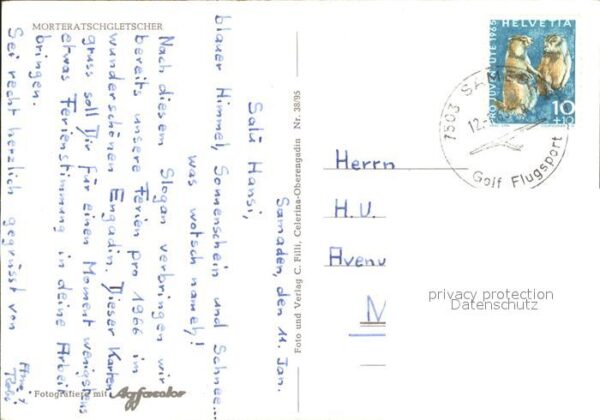 MORTERATSCHGLETSCHER
Samaden, den 11. Jan.
Salü Hansi,
blauer Himmel, Sonnenschein und Schnee...
was wotsch nameh!
Nach diesem Slogan verbringen wir
bereits unsere Ferien pro 1966 im
wunderschönen Engadin. Dieser Karten-
gruss soll Dir für einen Moment wenigstens
etwas Ferienstimmung in deine Arbeit
bringen.
Sei recht herzlich gegrüsst von
Fotografiere mit Agfacolor
Foto und Verlag C. Filli, Celerina-Oberengadin Nr. 38/95
HELVETIA
PRO JUVENTUTE 1965
10
+10
7503 SAMED
12.
Golf Flugsport
Herrn
H. U.
Avenu
M
privacy protection
Datenschutz